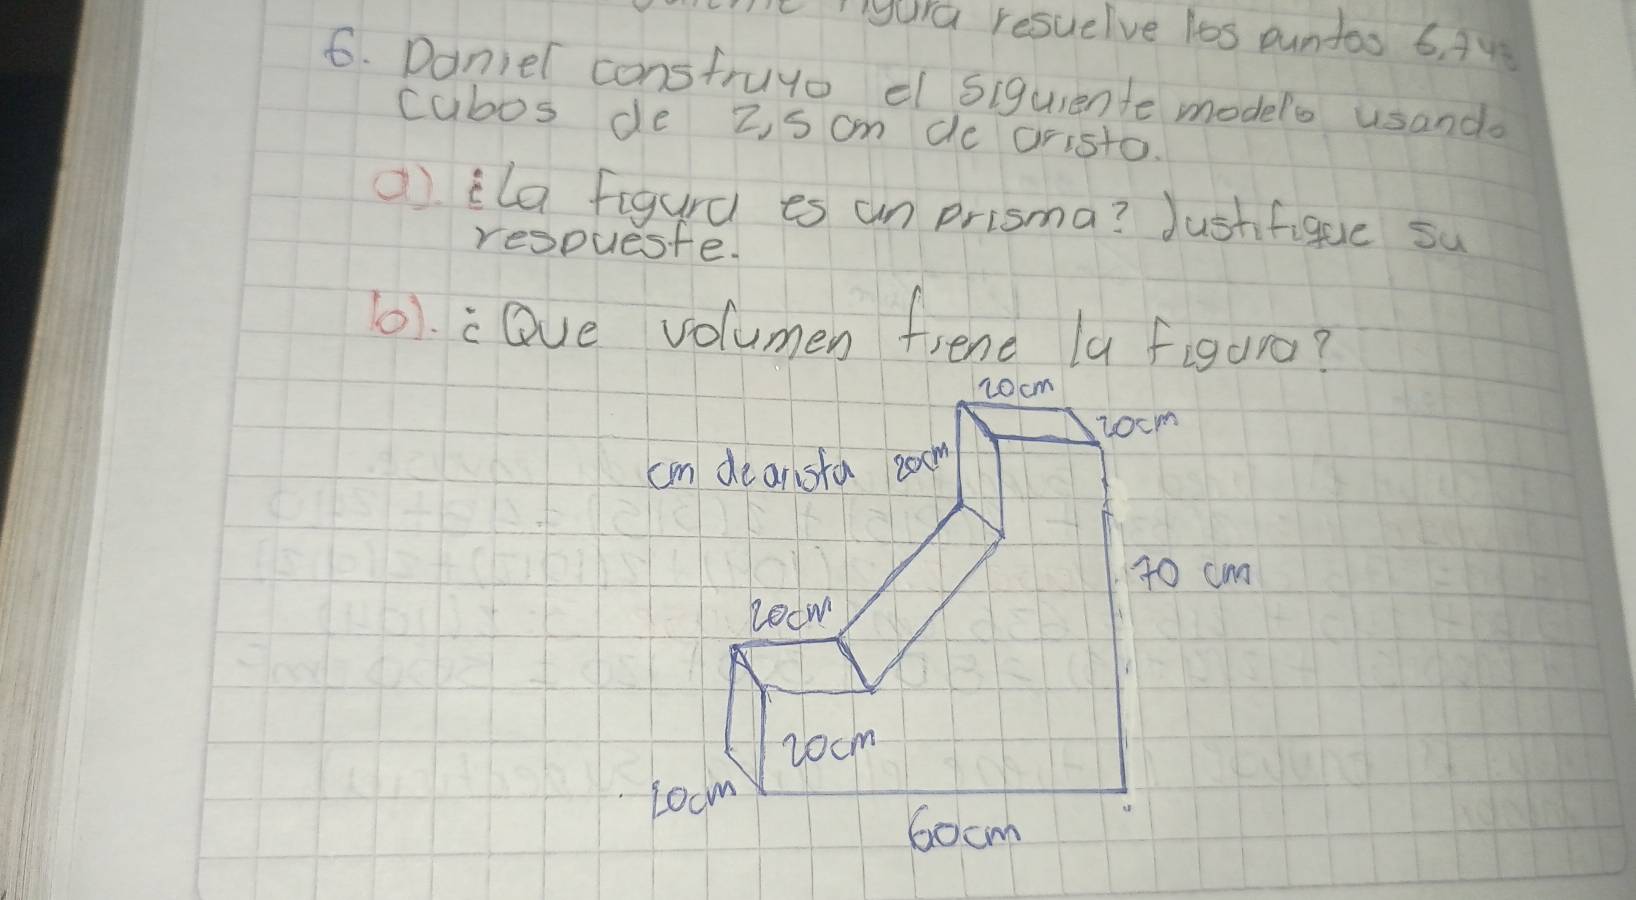 resuelve los puntos
6. Daniel construyo el siguiente modelo usando
cubos de 2,5 cm de aristo.
a). ¿La figura es un prisma? Justifique su
respueste.
b). ¿Que volumen tiene la figura?
20cm
20cm
cm de arista 20cm
70 cm
20cm
20cm
20cm
60cm